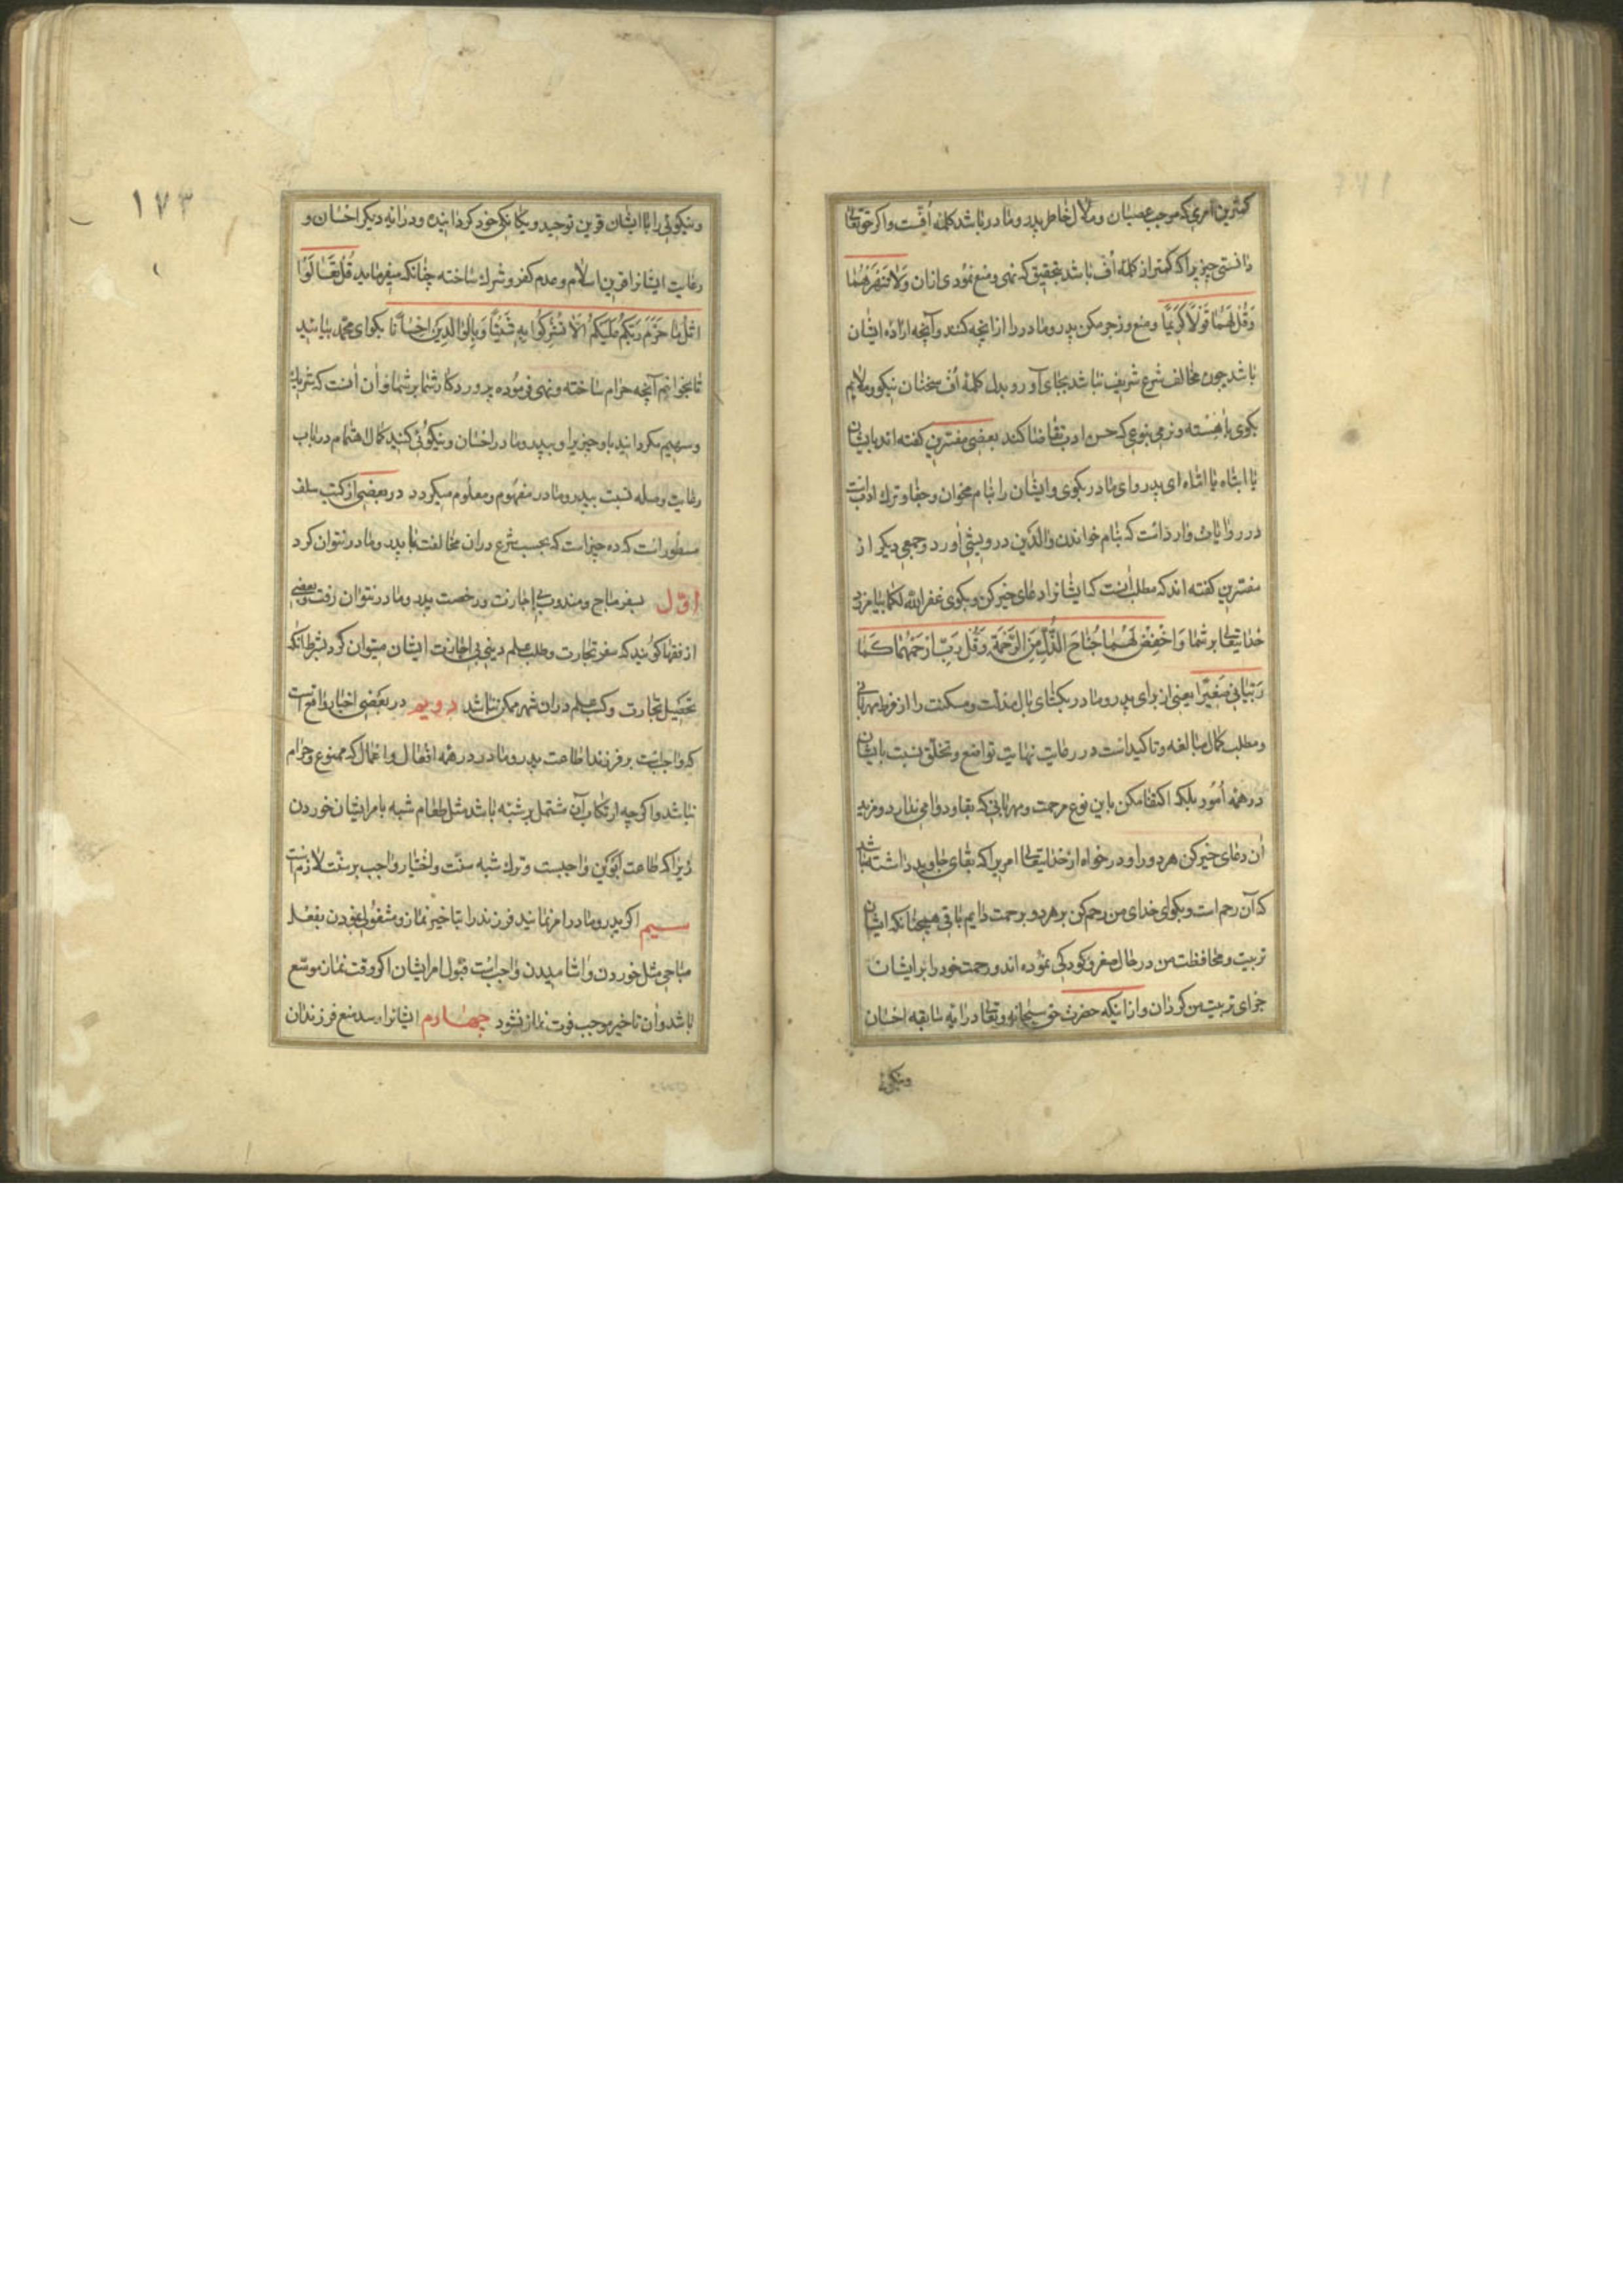 کمترین امری که موجب عصیان و ملال خاطر پدر و مادر باشد کلمه افست و اکر حقتعالی
دانستی چیزیرا که کمتر از کلمه اف باشد بتحقیق که نهی و منع نمودی ازان وَلا تَنْهَرْهُما
وَقُلْ لَهُما قَوْلاً كَريماً و منع و زجر مکن پدر و مادر را از انچه کنند و آنچه اراده ایشان
باشد چون مخالف شرع شریف نباشد بجای آور و بدل کلمه اف سخنان نیکو و ملایم
بکوی باهسته و نرمی بنوعی که حسن ادب تقاضا کند بعضی مفسرین کفته اند بایشان
یا ابتاه یا اماه ای پدر و ای مادر بکوی و ایشان را بنام مخوان و جفا و ترک ادبست
در روایات وارد است که بنام خواندن والدین درویشی آورد و جمعی دیکر از
مفسرین کفته اند که مطلب آنست که ایشانرا دعای خیر کن و بکوی غفر الله لکما بیامرزد
خدایتعالی بر شما وَاخْفِضْ لَهُما جَناحَ الذُّلِّ مِنَ الرَّحْمَةِ وَقُلْ رَبِّ ارْحَمْهُما كَما
رَبَّیانی صَغیراً یعنی از برای پدر و مادر بکشای بال مذلت و مسکنت را از فرط مهربانی
و مطلب کمال مبالغه و تاکید است در رعایت نهایت تواضع و تخلق نسبت بایشان
در همه امور بلکه اکتفا مکن باین نوع مرحمت و مهربانی که بقا و دوامی ندارد و مزید
آن دعای خیر کن هر دو را و در خواه از خدایتعالی امریرا که بقای جاوید داشته باشد
که آن رحم است و بکوای خدای من رحم کن بر هر دو برحمت دایم باقی همچنانکه ایشان
تربیت و محافظت من در حال صغر و کودکی نموده اند و رحمت خود را بر ایشان
جزای تربیت من کردان و از اینکه حضرت حق سبحانه و تعالی در ایه سابقه احسان
و نیکوئی
۱۷۳
و نیکوئی را با ایشان قرین توحید و یکانکی خود کردانیده و در ایه دیکر احسان و
رعایت ایشانرا قرین اسلام و عدم کفر و شرک ساخته چنانکه میفرماید قُلْ تَعالَوْا
اَتْلُ ما حَرَّمَ رَبُّكُمْ عَلَيْكُمْ اَلاّ تُشْرِكُوا بِهِ شَيْئاً وَبِالْوالِدَيْنِ اِحْساناً بکو ای محمد بیائید
تا بخوانم آنچه حرام ساخته و نهی فرموده پروردکار شما بر شما و آن انست که شریک
و سهیم مکردانید باو چیزیرا و بپدر و مادر احسان و نیکوئی کنید کمال اهتمام در باب
رعایت و صله نسبت بپدر و مادر مفهوم و معلوم میکردد در بعضی از کتب سلف
مسطور است که ده چیز است که بحسب شرع دران مخالفت با پدر و مادر نتوان کرد
اوّل بسفر مباح و مندوب بی اجازت و رخصت پدر و مادر نتوان رفت و بعضی
از فقها کویند که سفر تجارت و طلب علم دینی بی اجازت ایشان میتوان کرد بشرط آنکه
تحصیل تجارت و کسب علم دران شهر ممکن نباشد دویم در بعضی اخبار واقع است
که واجبست بر فرزند اطاعت پدر و مادر در همه افعال و اعمال که ممنوع و حرام
نباشد و اکرچه ارتکاب آن مشتمل بر شبه باشد مثل طعام شبه بامر ایشان خوردن
زیرا که طاعت ابوین واجبست و ترک شبه سنت و اختیار واجب بر سنت لازم است
سیم اکر پدر و مادر امر نمایند فرزند را بتاخیر نماز و مشغول نمودن بفعل
مباحی مثل خوردن و اشامیدن واجبست قبول امر ایشان اکر وقت نماز موسع
باشد و ان تاخیر موجب فوت نماز نشود چهارم ایشانرا رسد منع فرزندان